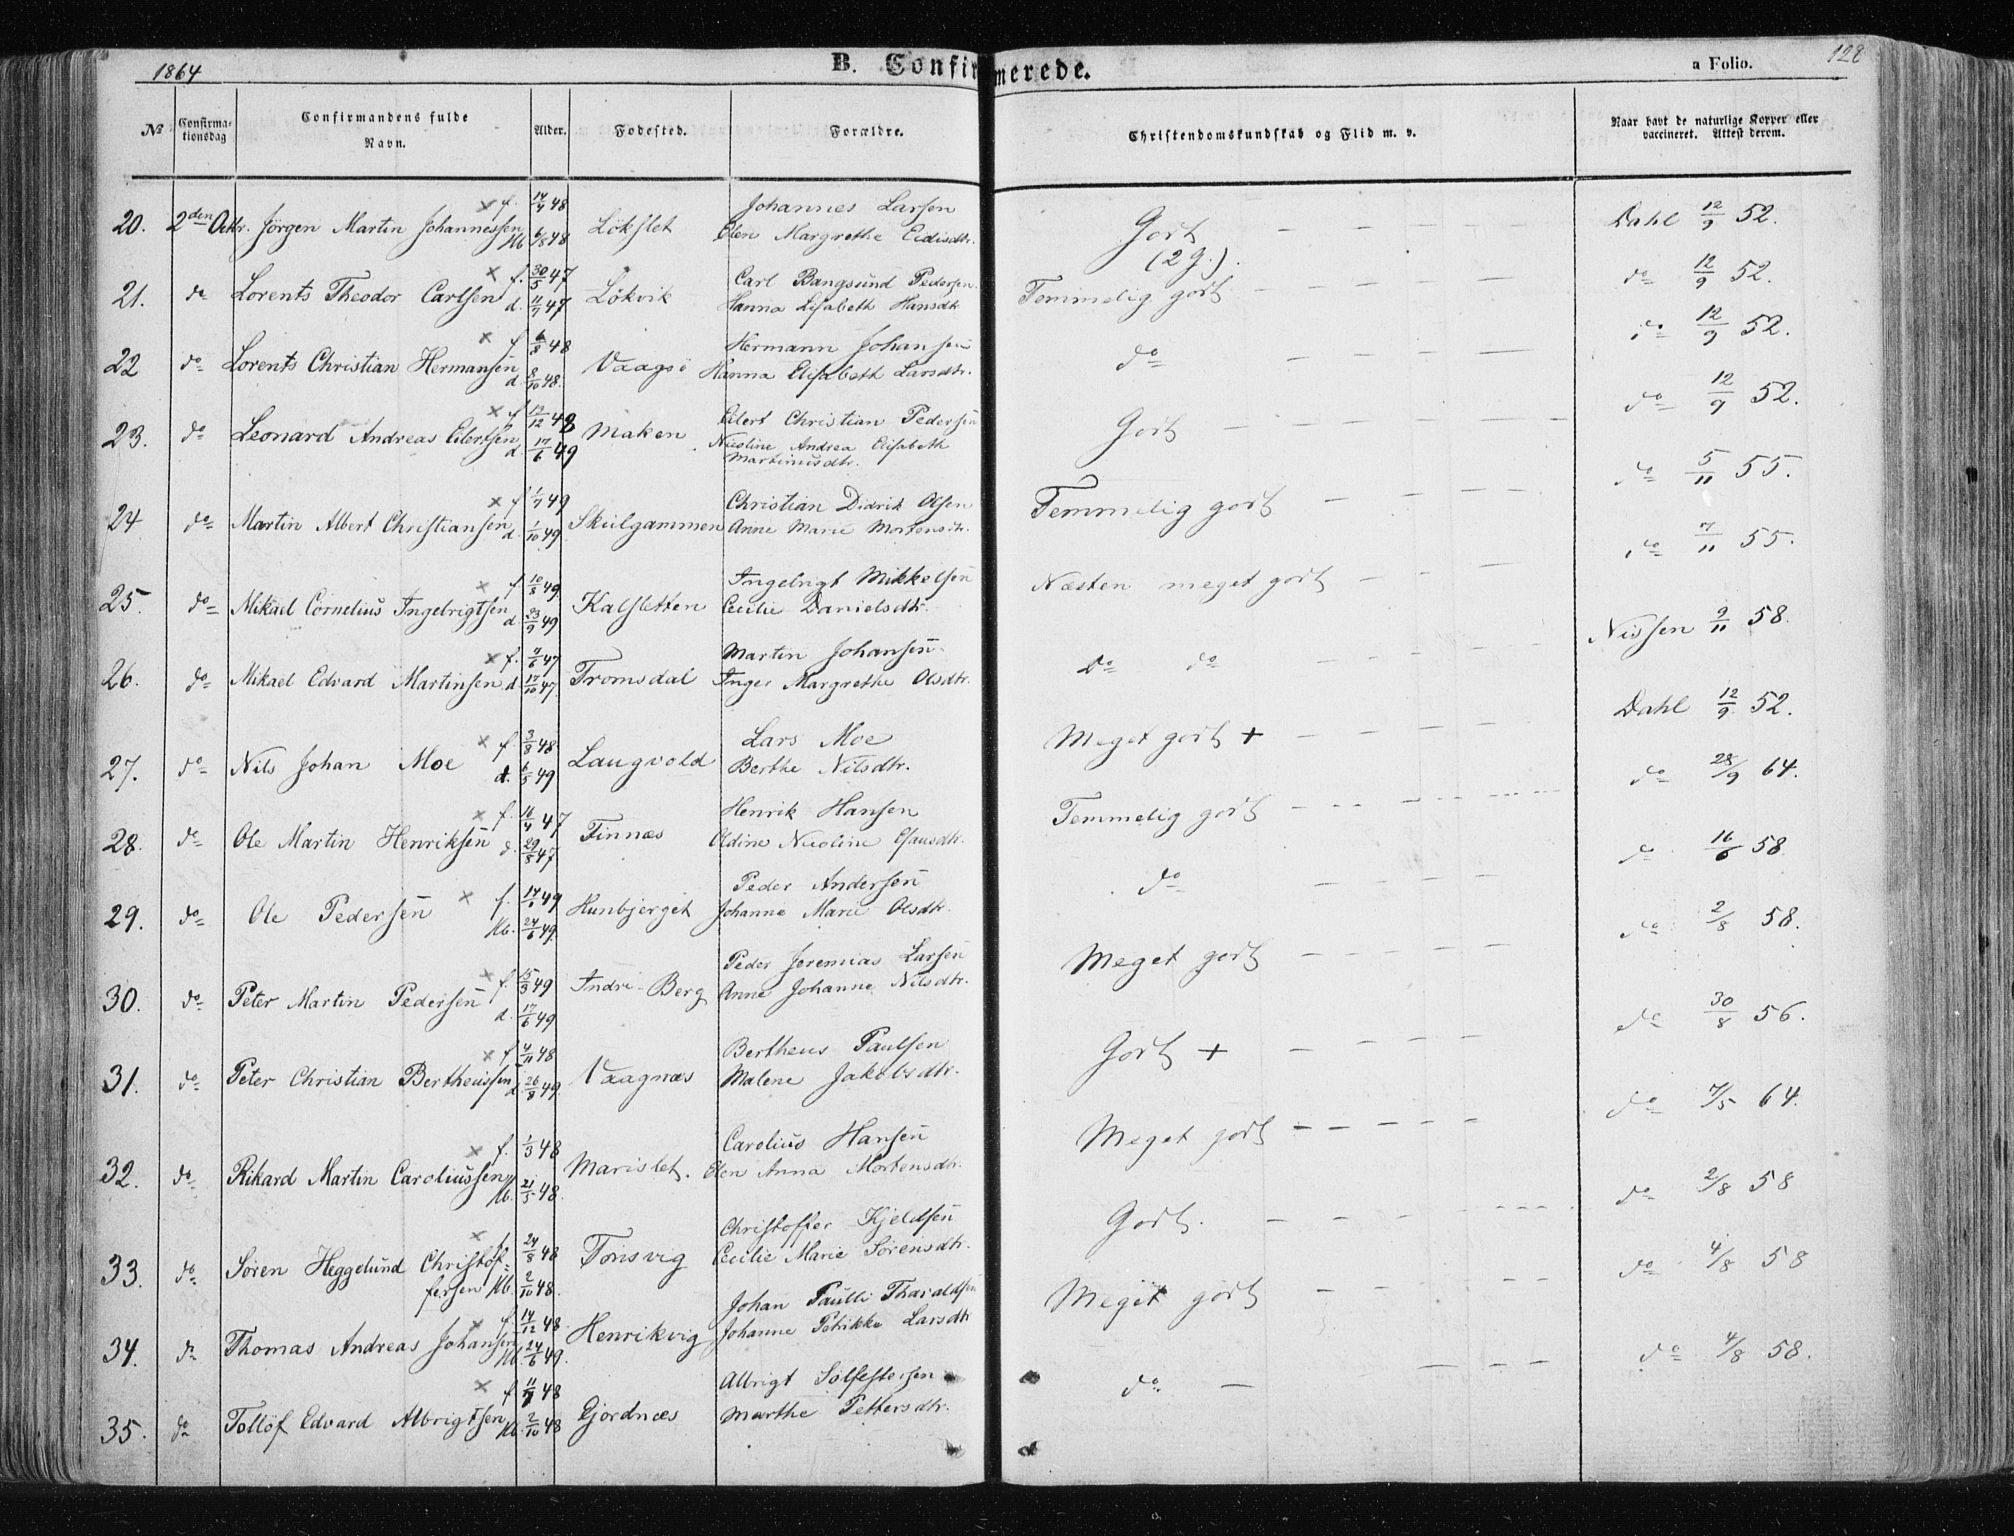 1864
B. Confirmerede.
a Folio. 128
No Confirmationsdag Confirmandens fulde Navn. Alder. Fødested. Forældre. Christendomskundskab og Flid m. v. Naar havt de naturlige Kopper eller vaccineret. Attest derom.
20. 2den Octbr. Jörgen Martin Johannessen × f. 14/7 48 Kb 6/8 48 Lökslet Johannes Larsen Elen Margrethe Eidisdtr. Godt (2 G.). Dahl 12/9 52.
21. do Lorents Theodor Carlsen × f. 30/5 47 d. 11/7 47 Lökvik Carl Bangsund Pedersen Hanna Elisabeth Hansdtr Temmelig godt do 12/9 52.
22 do Lorents Christian Hermansen × f 6/8 48 d 8/10 48. Vaagsö Hermann Johansen Hanna Elisabeth Larsdtr. do do 12/9 52.
23. do Leonard Andreas Eilertsen × f 12/12 48 d. 17/6 49 Maken Eilert Christian Pedersen Nicoline Andrea Elisabeth Martinusdtr. Godt do 12/9 52.
24 do Martin Albert Christiansen × f 1/7 49 d. 1/10 49 Skulgammen Christian Didrik Olsen Anne Marie Mortensdtr. Temmelig godt do 5/11 55.
25. do Mikael Cornelius Ingebrigtsen × f. 10/8 49 d 23/9 49 Kalsletten Ingebrigt Mikkelsen Cecilie Danielsdtr. Næsten meget godt do 7/11 55.
26. do Mikael Edvard Martinsen × f. 11/6 47 d 17/10 47 Tromsdal Martin Johansen Inger Margrethe Olsdtr. Do do Nissen 9/11 58.
27. do Nils Johan Moe × f. 3/8 48 d. 6/5 49 Laugvold Lars Moe Berthe Nilsdtr. Meget godt + Dahl 12/9 52.
28. do Ole Martin Henriksen × f. 16/4 47 d. 29/8 47 Finnæs Henrik Hansen Oldine Nicoline Esausdtr. Temmelig godt do 28/9 64.
29. do Ole Pedersen × f. 49 Kb. 24/6 49 Hunbjerget Peder Andersen Johanne Marie Olsdtr. do do 16/6 58
30. do Peter Martin Pedersen × f. 5/3 49 d. 17/6 49 Indre-Berg Peder Jeremias Larsen Anne Johanne Nilsdtr. Meget godt do 2/8 58.
31. do Peter Christian Bertheussen × f. 4/11 48 d. 26/8 49 Vaagnæs Bertheus Paulsen Malene Jakobsdtr. Godt + do 30/8 56.
32. do Rikard Martin Caroliussen × f. 1/3 48 Kb. 21/5 48. Marislet. Carolius Hansen Elen Anna Mortensdtr. Meget godt do 7/5 64.
33. do Sören Heggelund Christoffersen × f 24/8 48 Kb. 2/10 48. Tonsvig Christoffer Kjeldsen Cecilie Marie Sörensdtr. Godt. do 2/8 58
34. do Thomas Andreas Johansen × f. 14/12 48 Kb. 24/6 49. Henrikvig Johan Paulli Tharaldsen Johanne Petrikke Larsdtr Meget godt do 4/8 58
35. do Tollöf Edvard Albrigtsen × f. 48 Kb. 2/10 48 Gjordnæs Albrigt Solfestersen Marthe Pettersdtr. do do 4/8 58.